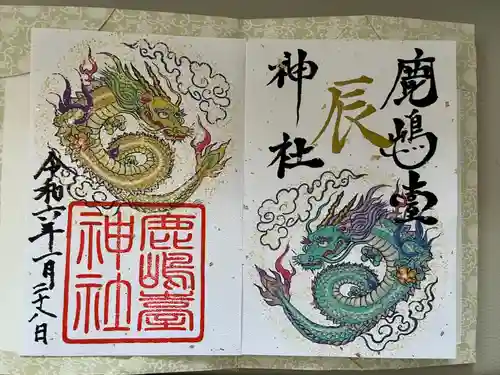 鹿嶋臺
神社
辰
鹿嶋臺
神社
令和六年一月二十八日